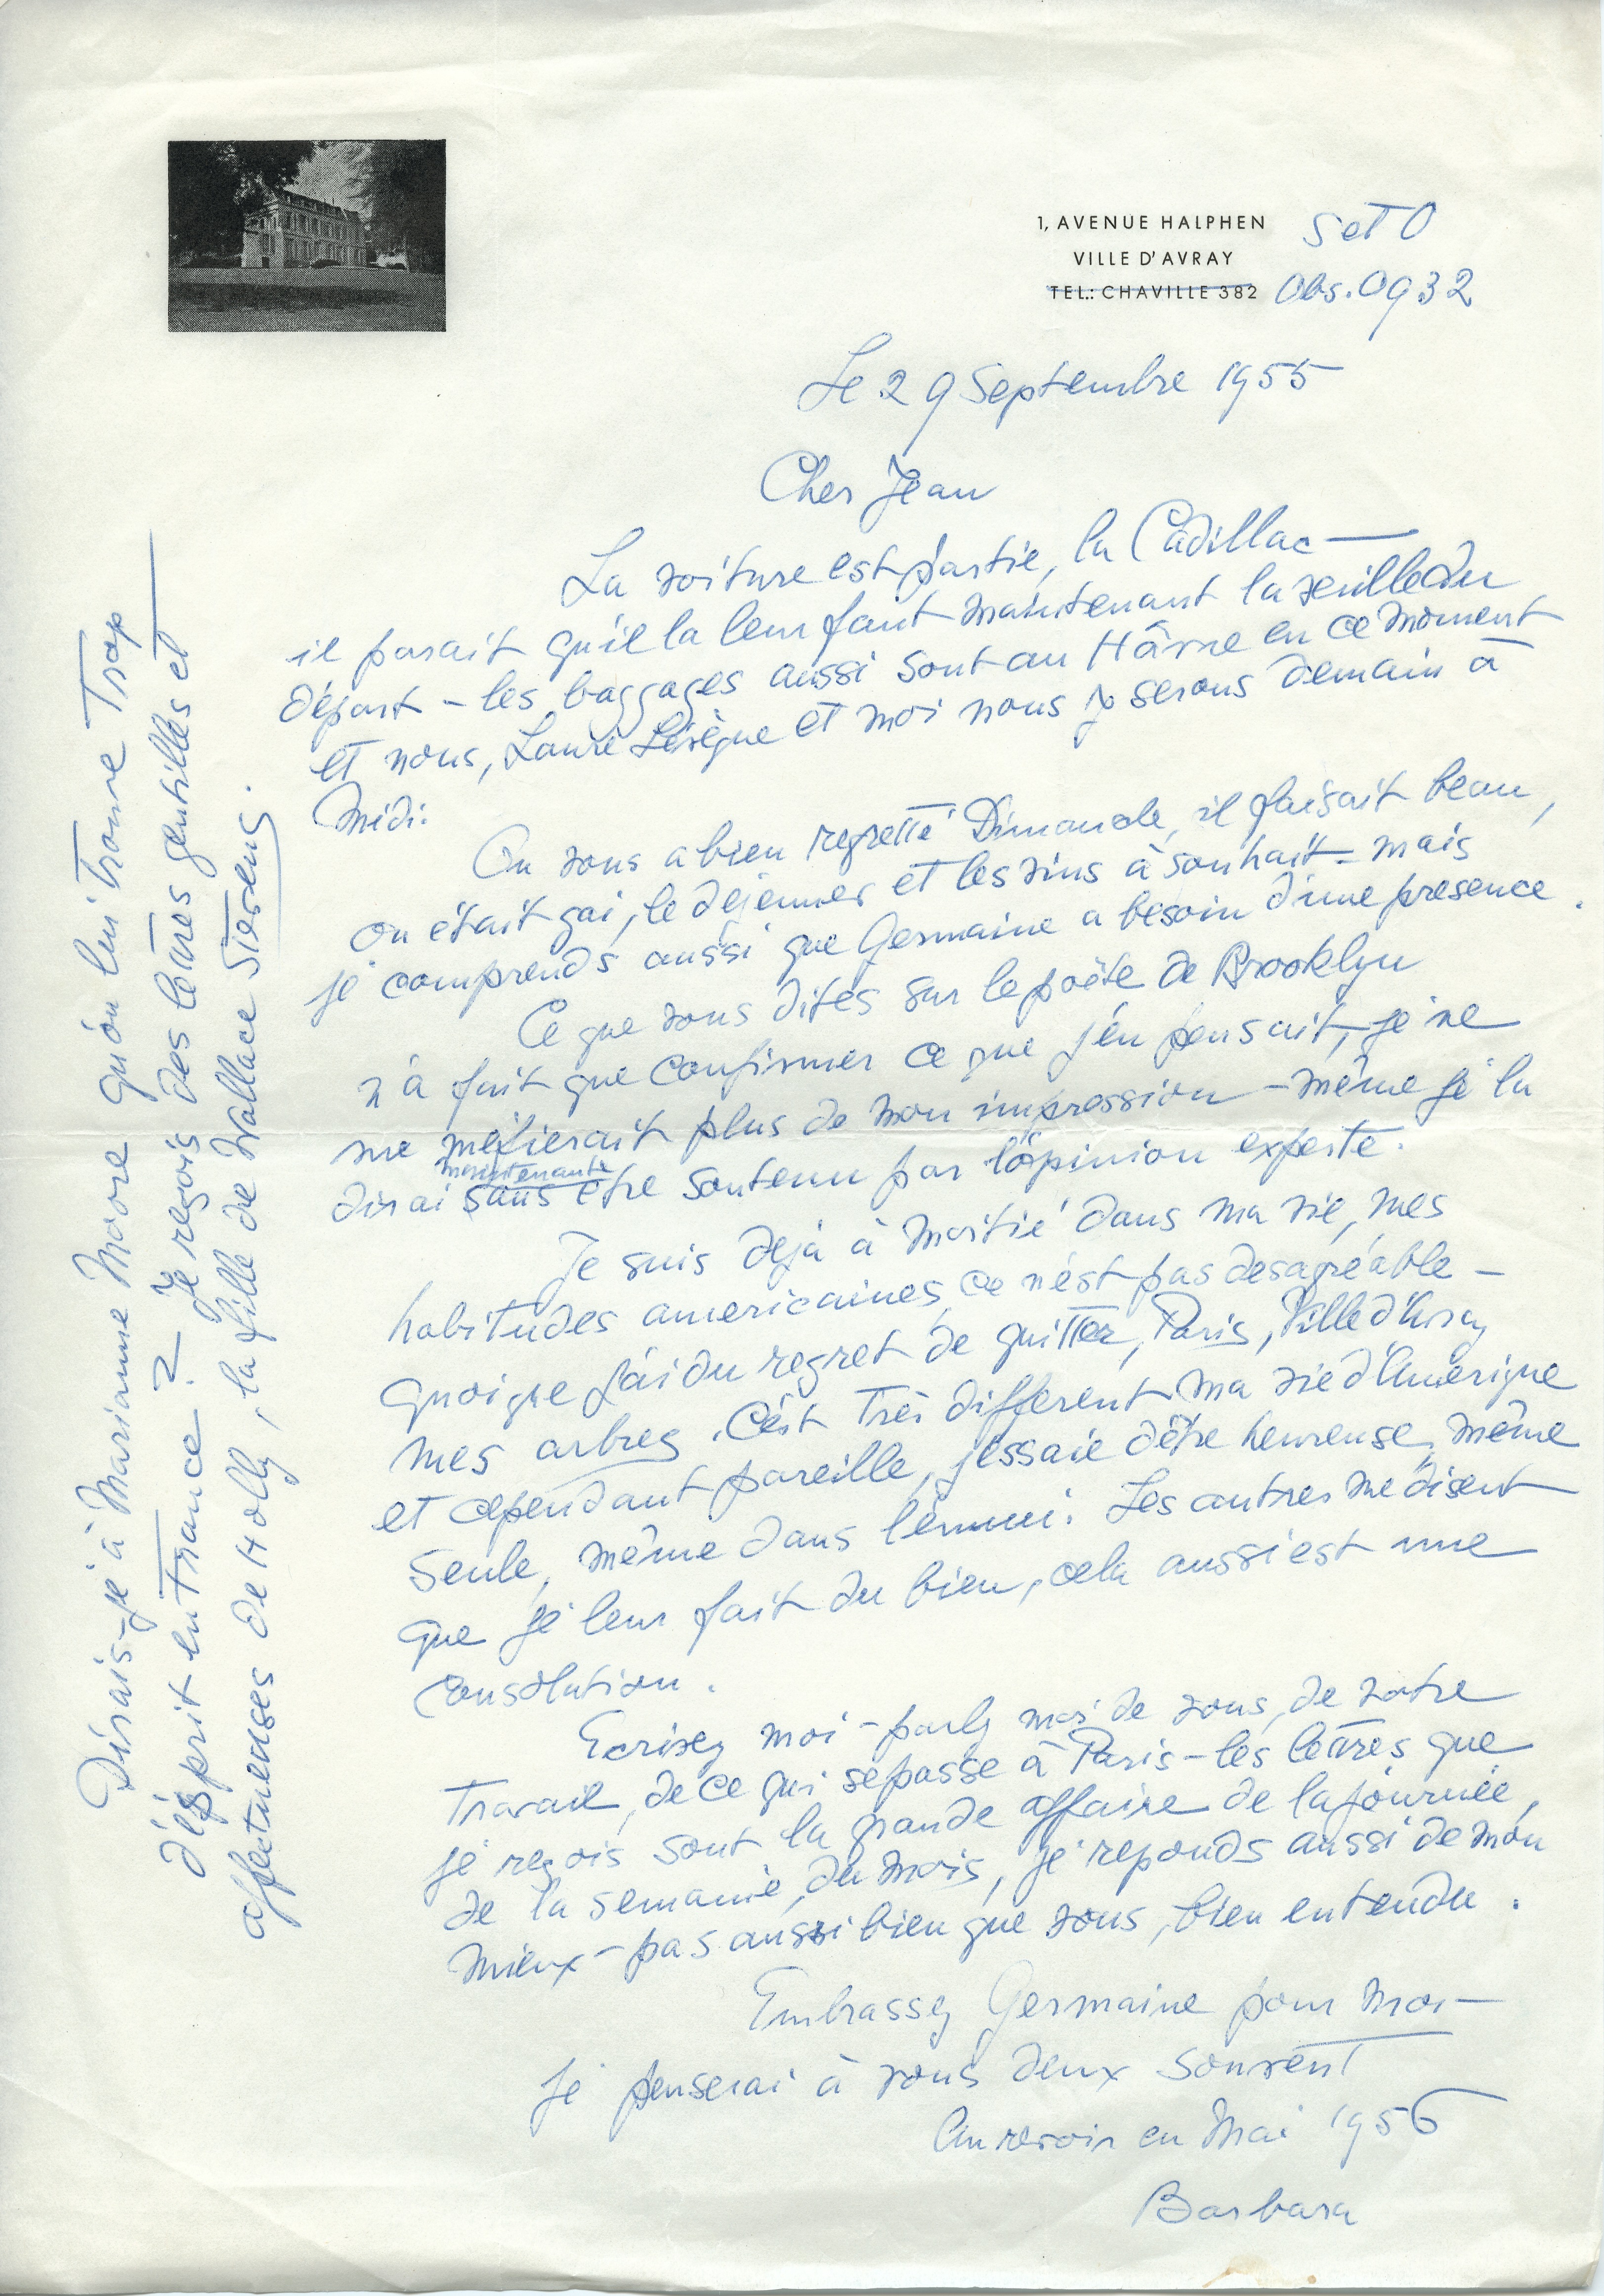 1, AVENUE HALPHEN
VILLE D'AVRAY
TEL.: CHAVILLE 382
S et O
Obs. 0932
Le 29 Septembre 1955
Cher Jean
La voiture est partie, la Cadillac —
il parait qu'il la leur faut maintenant la veille du
départ – les baggages aussi sont au Hâvre en ce moment
et nous, Laure Lévèque et moi nous y serons demain à
Midi.
On vous a bien regretté Dimanche, il faisait beau,
on était gai, le dejeuner et les vins à souhait – mais
je comprends aussi que Germaine a besoin d'une presence.
Ce que vous dites sur le poëte de Brooklyn
n'a fait que confirmer ce que j'en pensait, je ne
me mefierait plus de mon impression – même je la
dirai maintenant sans être soutenu par l'opinion experte.
Je suis dejà à moitié dans ma vie, mes
habitudes americaines, ce n'est pas desagréable –
quoique j'ai du regret de quitter, Paris, Ville d'Avray
mes arbres. C'est très different ma vie d'Amerique
et cependant pareille, j'essaie d'être heureuse, même
seule, même dans l'ennui. Les autres me disent
que je leur fait du bien, cela aussi est une
consolation.
Ecrivez moi – parlez moi de vous, de votre
travail, de ce qui se passe à Paris – les lettres que
je reçois sont la grande affaire de la journée,
de la semaine, du mois, je reponds aussi de mon
mieux – pas aussi bien que vous, bien entendu.
Embrassez Germaine pour moi –
je penserai à vous deux souvent
Au revoir en Mai 1956
Barbara
Dirais-je à Marianne Moore qu'on lui trouve trop
d'esprit en France? Je reçois des lettres gentilles et
affectueuses de Holly, la fille de Wallace Stevens.